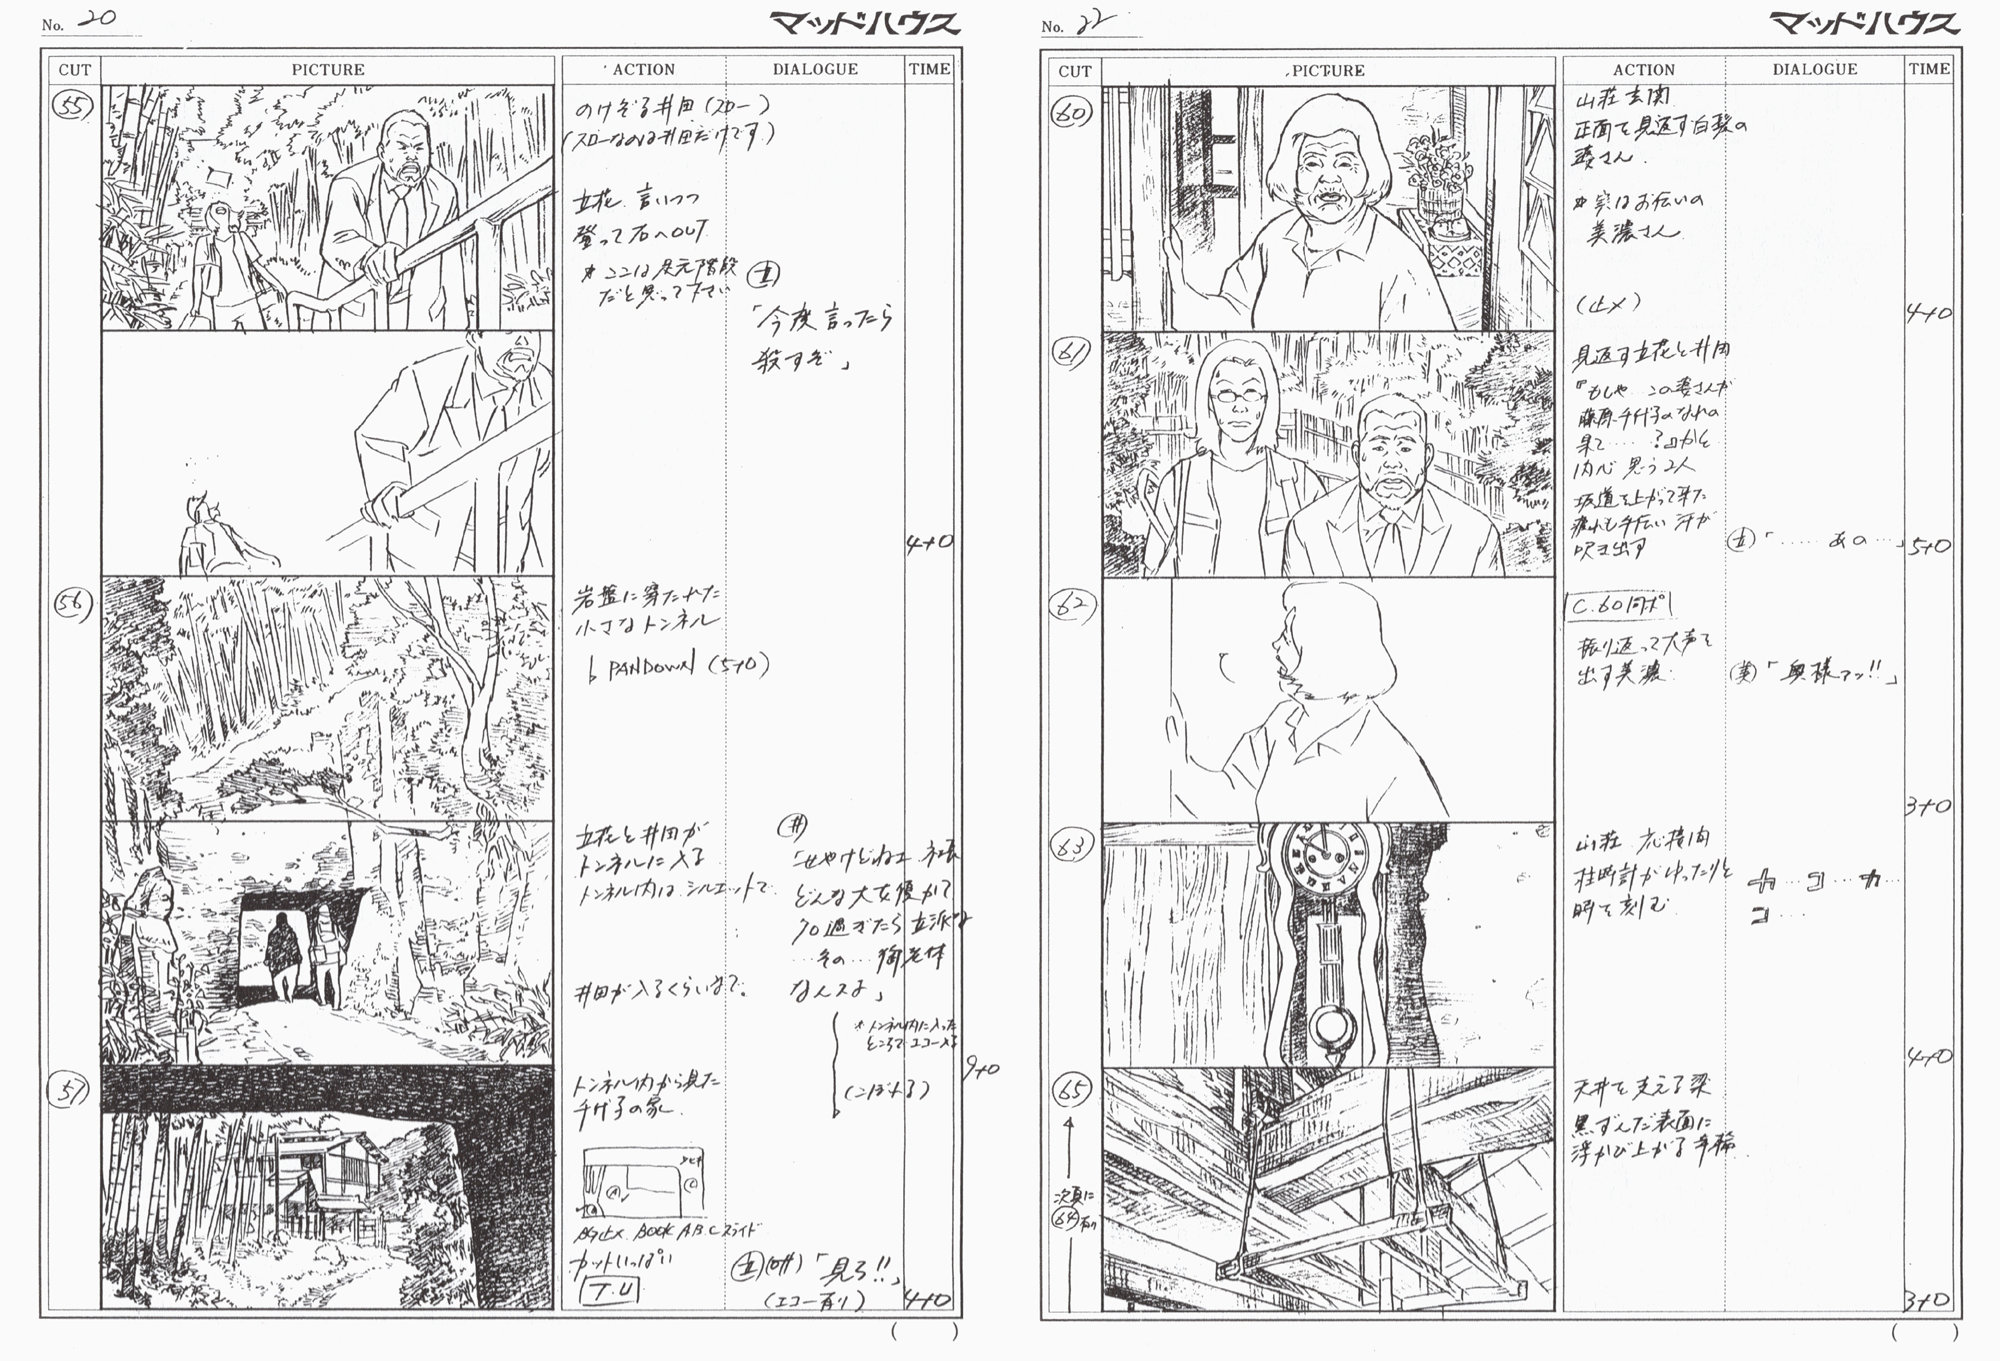 No. 20
マッドハウス
CUT PICTURE ACTION DIALOGUE TIME
55
のけぞる井田(スロー)
(スローなのは井田だけです)
立花、言いつつ
登って右へOUT
*ここは足元階段
だと思って下さい
立
「今度言ったら
殺すぞ」
4+0
56
岩盤に穿たれた
小さなトンネル
PANDOWN (5+0)
立花と井田が
トンネルに入る
トンネル内は、シルエットで
井田が入るくらいまで。
井
「せやけどねェ 社長
どんな大女優かて
70過ぎたら立派な
…その…
なんスよ」
*トンネル内に入った
ところで エコー入る
(こぼれる)
9+0
57
トンネル内から見た
千代子の家
BOOK A.B.C スライド
カットいっぱい
T.U
立(off)「見ろ!!」
(エコー有り)
4+0
( )
No. 22
マッドハウス
CUT PICTURE ACTION DIALOGUE TIME
60
山荘玄関
正面を見返す白髪の
婆さん
*実はお伝いの
美濃さん
(止メ)
4+0
61
見返す立花と井田
『もしや この婆さんが
藤原千代子のなれの
果て……?』かと
内心 思う2人
坂道を上がって来た
疲れも手伝い 汗が
吹き出す
立「……あの…」
5+0
62
C.60同ポ
振り返って大声を
出す美濃
美「奥様ァッ!!」
3+0
63
山荘 応接間
柱時計がゆったりと
時を刻む
カ…コ…カ…
コ…
4+0
65
次頁に
64有り
天井を支える梁
黒ずんだ表面に
浮かび上がる年輪
3+0
( )